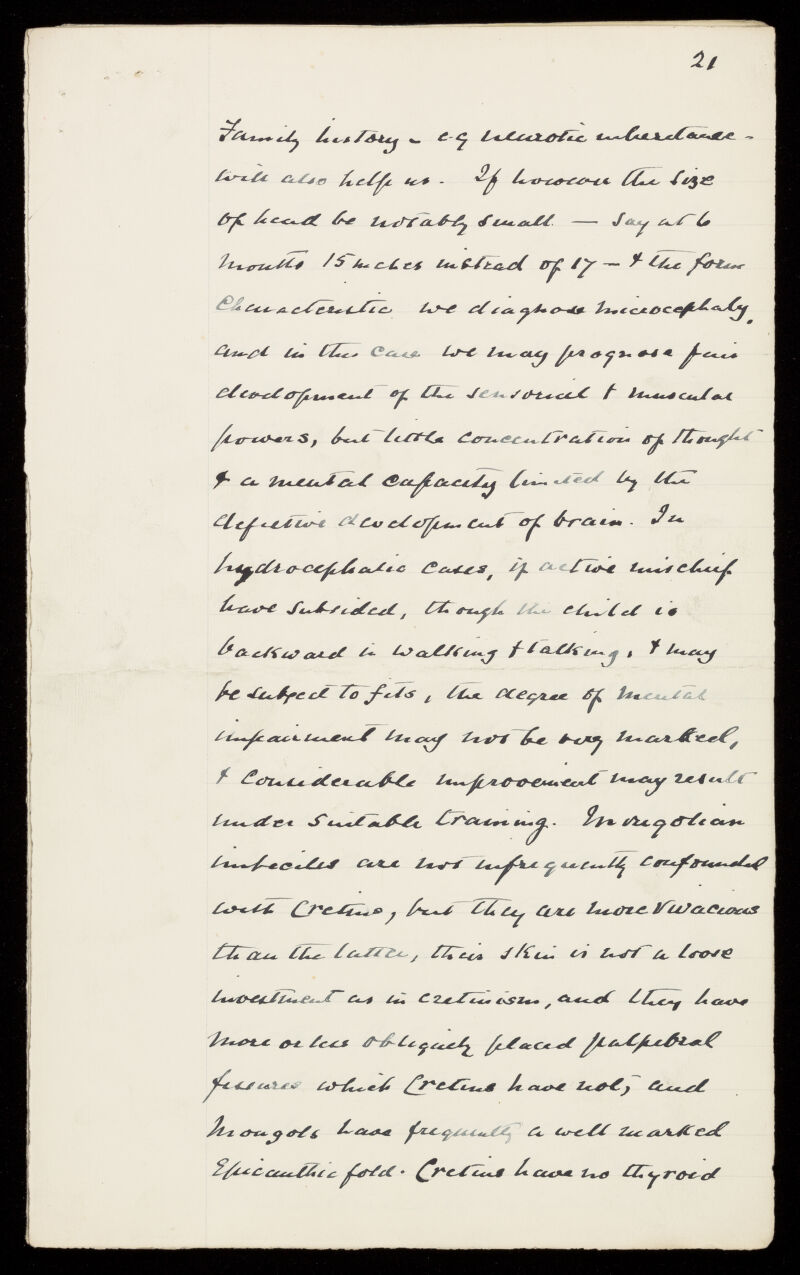 21
Family history – e.g neurotic inheritance –
will also help us. If however the size
of head be notably small — say at 6
months 15 inches instead of 17 – & the form
characteristic we diagnose microcephaly,
and in this case we may prognose fair
development of the sensorial & muscular
powers, but little concentration of thought
& a mental capacity limited by the
defective development of brain. In
hydrocephalic cases, if active mischief
have subsided, though the child is
backward in walking & talking, & may
be subject to fits, the degree of mental
impairment may not be very marked,
& considerable improvement may result
under suitable training. Mongolian
imbeciles are not infrequently confounded
with Cretins, but they are more vivacious
than the latter, their skin is not a loose
investment as in cretinism, and they have
more or less obliquely placed palpebral
fissures which Cretins have not; and
Mongols have frequently a well marked
Epicanthic fold. Cretins have no thyroid